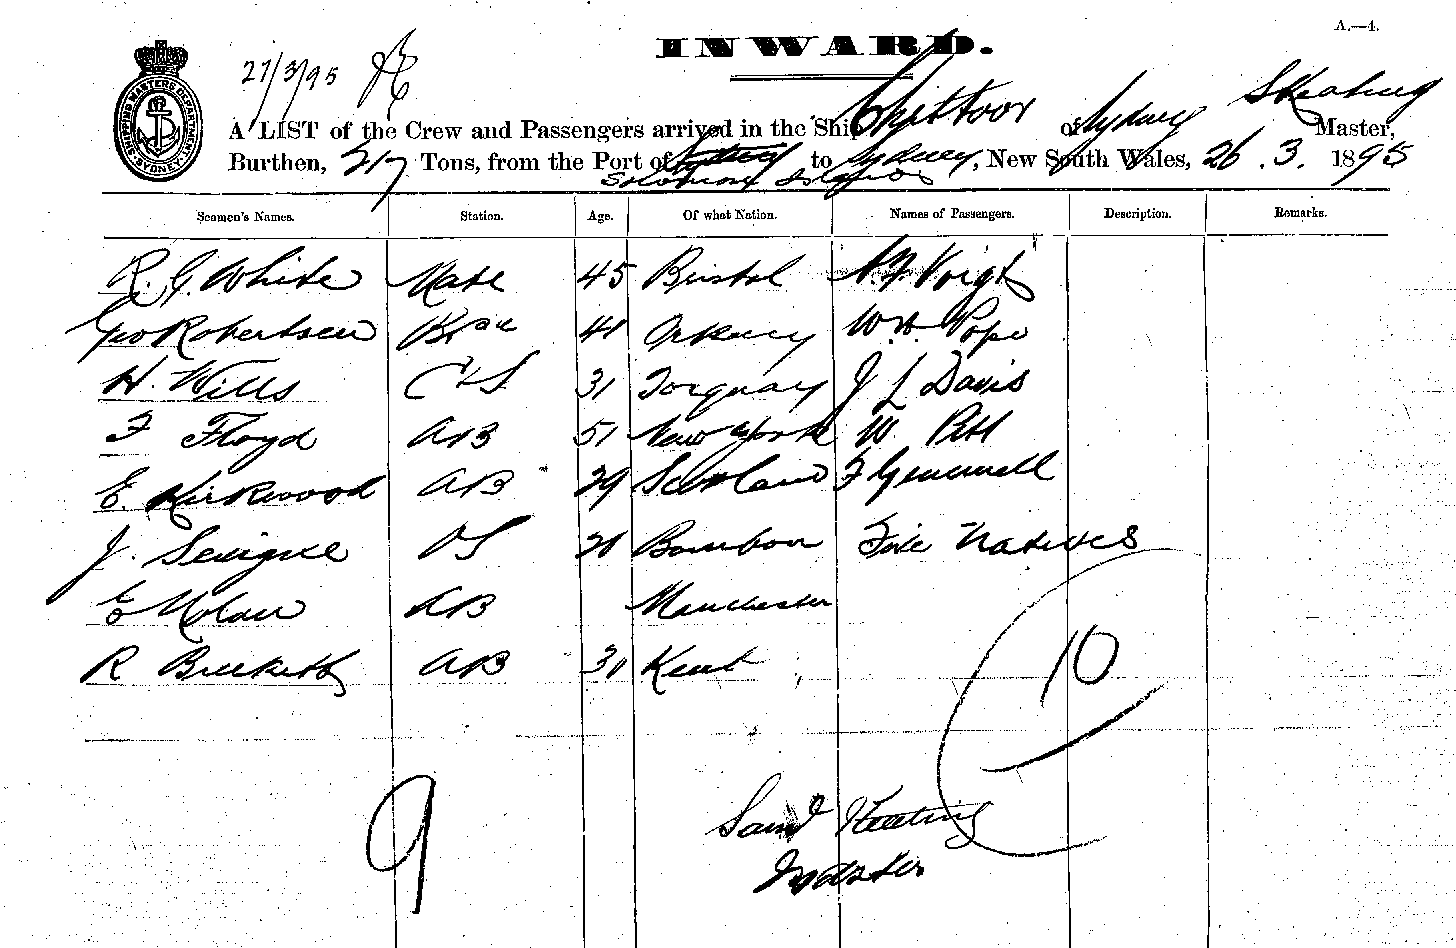 A.—4.
INWARD.
27/3/95
SHIPPING MASTERS DEPARTMENT SYDNEY
A LIST of the Crew and Passengers arrived in the Ship Chittoor of Sydney S Keating Master,
Burthen, 217 Tons, from the Port of Sydney to Sydney, New South Wales, 26 . 3 . 1895
Solomon Islands
Seamen's Names. Station. Age. Of what Nation. Names of Passengers. Description. Remarks.
R. G. White Mate 45 Bristol Voigt
Geo Robertson 41 Orkney W. H. Pope
H. Wills C & S 31 Torquay J L Davis
F Floyd AB 51 New York W Pitt
E. Kirkwood AB 29 Scotland F Gemmell
J. Sevigne OS 20 Bourbon Five Natives
E Nolan AB Manchester
R AB 31 Kent
10
9
Saml Keating
Master